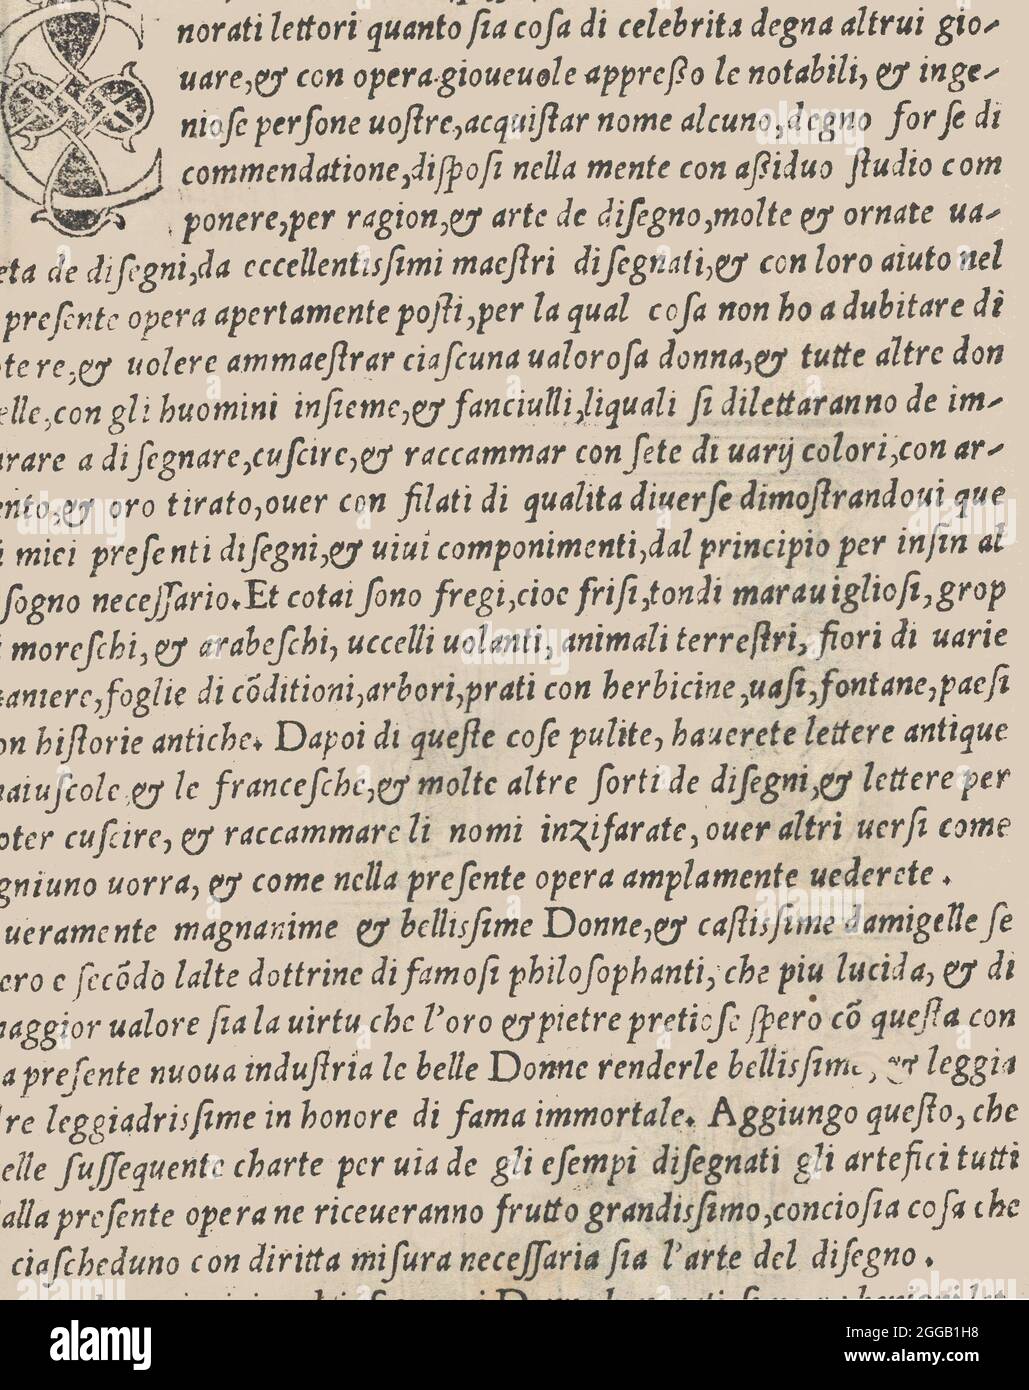 norati lettori quanto ſia coſa di celebrita degna altrui gio-
uare,& con opera gioueuole appreßo le notabili, & inge-
nioſe perſone uoſtre,acquiſtar nome alcuno,degno forſe di
commendatione,diſpoſi nella mente con aßiduo ſtudio com
ponere,per ragion,& arte de diſegno,molte & ornate ua-
eta de diſegni,da eccellentisſimi maeſtri diſegnati,& con loro aiuto nel
preſente opera apertamente poſti,per la qual coſa non ho a dubitare di
tere,& uolere ammaeſtrar ciaſcuna ualoroſa donna,& tutte altre don
elle,con gli huomini inſieme,& fanciulli,liquali ſi dilettaranno de im-
arare a diſegnare,cuſcire,& raccammar con ſete di uarij colori,con ar-
ento,& oro tirato,ouer con filati di qualita diuerſe dimoſtrandoui que
i mici preſenti diſegni,& uiui componimenti,dal principio per inſin al
ſogno neceſſario.Et cotai ſono fregi,cioe friſi,tondi marauiglioſi,grop
i moreſchi,& arabeſchi, uccelli uolanti, animali terreſtri, fiori di uarie
aniere,foglie di cōditioni,arbori,prati con herbicine,uaſi,fontane,paeſi
on hiſtorie antiche. Dapoi di queſte coſe pulite, hauerete lettere antique
aiuſcole,& le franceſche,& molte altre ſorti de diſegni,& lettere per
oter cuſcire, & raccammare li nomi inzifarate,ouer altri uerſi come
gniuno uorra, & come nella preſente opera amplamente uederete.
ueramente magnanime & bellisſime Donne,& caſtisſime damigelle ſe
ero e ſecōdo lalte dottrine di famoſi philoſophanti, che piu lucida, & di
aggior ualore ſia la uirtu che l'oro & pietre pretioſe ſpero cō queſta con
a preſente nuoua induſtria le belle Donne renderle bellisſime, & leggia
dre leggiadrisſime in honore di fama immortale. Aggiungo queſto, che
elle ſuſſequente charte per uia de gli eſempi diſegnati gli artefici tutti
alla preſente opera ne riceueranno frutto grandisſimo,concioſia coſa che
ciaſcheduno con diritta miſura neceſſaria ſia l'arte del diſegno.
alamy
Image ID: 2GGB1H8
www.alamy.com